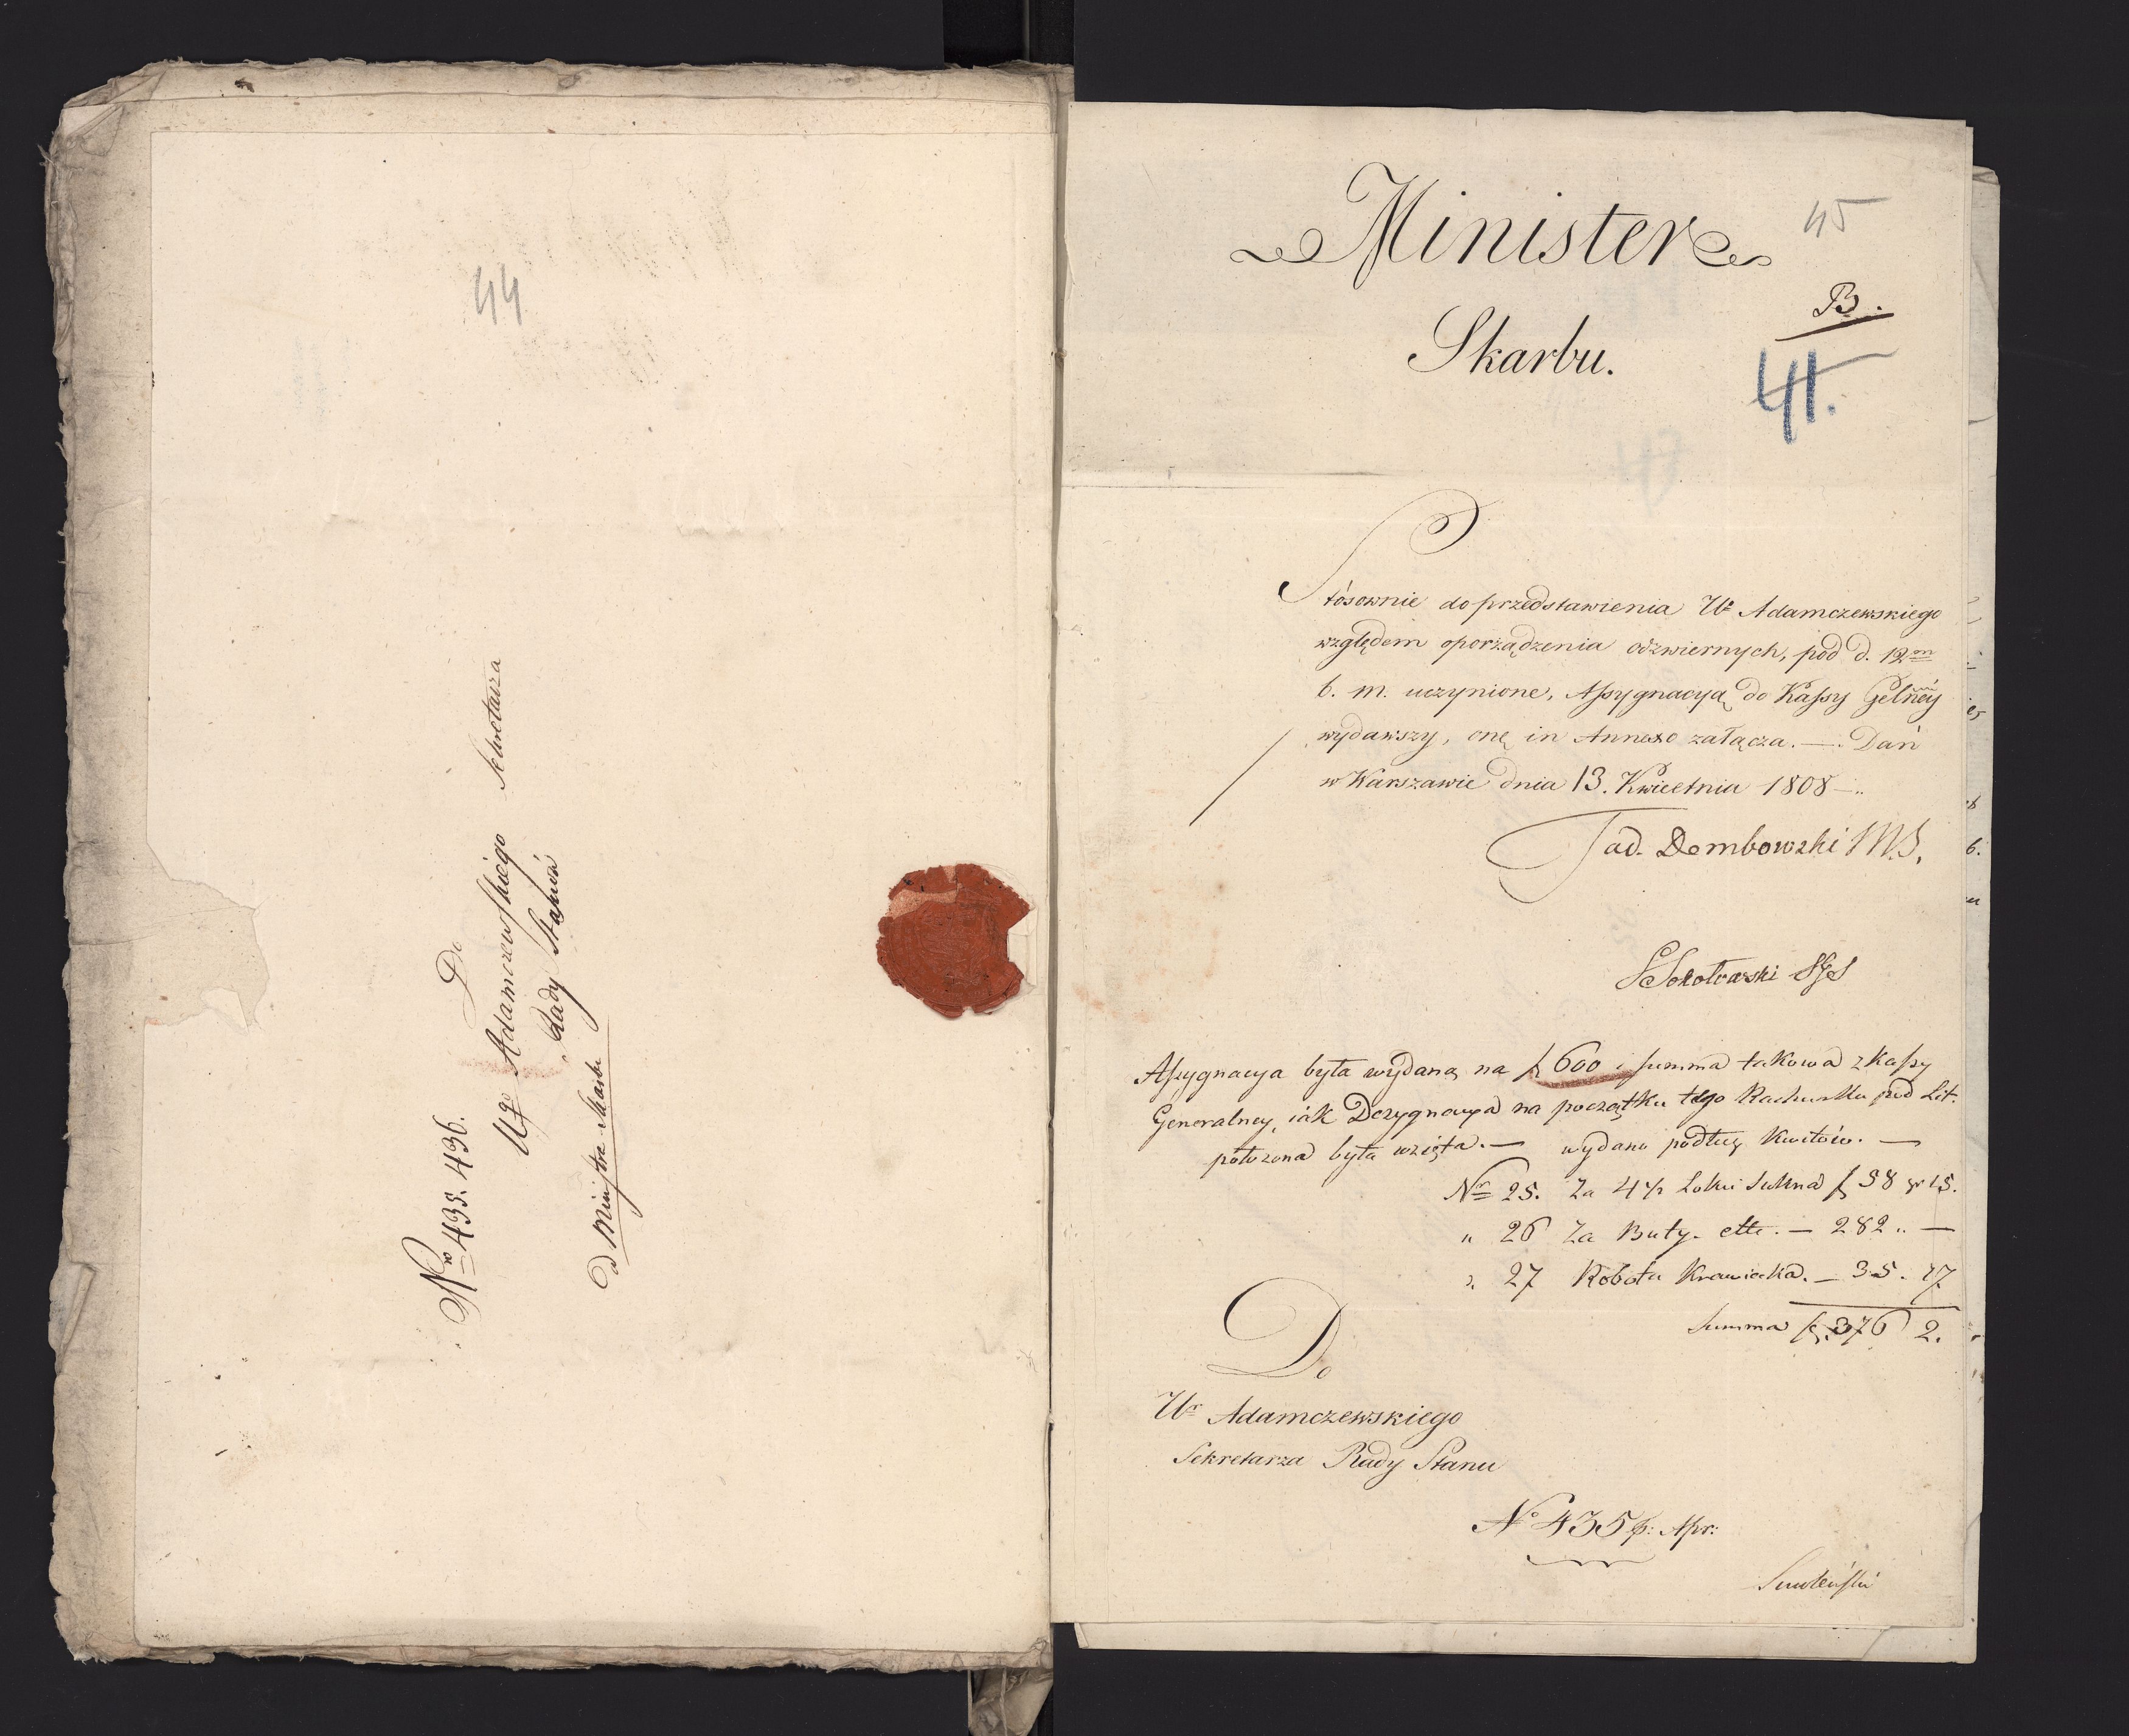 44
Nro 435. 436.
Do
Wgo Adamczewskiego Sekretarza
Rady Stanu
od Ministra Skarbu
45
Minister
B.
Skarbu.
41.
Stósownie do przedstawienia Ur Adamczewskiego
względem oporządzenia odzwiernych, pod d. 12m
b. m. uczynione, Assygnacyą do Kassy Gelnéy
wydawszy, onę in Annexo załącza. — Dań
w Warszawie dnia 13. Kwietnia 1808
Tad. Dembowski M.S.
Sokołowski SGS
Assygnacya była wydaną na f 600 i summa takowa z Kassy
Generalney, iak Dezygnacya na początku tego Rachunku pod Lit.
położona była wzięta. — wydano podług Kwitów. —
Nr 25. Za 4½ Łokci Sukna f 58 gr 15.
" 26 Za Buty. ett. — 282 .. —
" 27 Robota Krawiecka. — 35. 17
Summa f. 376 2.
Do
Ur Adamczewskiego
Sekretarza Rady Stanu
No 435 p: Apr:
Smoleński